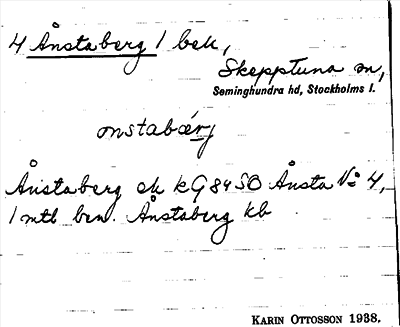 4 Ånstaberg 1 bek,
Skepptuna sn,
Seminghundra hd, Stockholms l.
ɷnstabærj
Ånstaberg ek KG 84 SO Ånsta No 4,
1 mtl ben. Ånstaberg kb
KARIN OTTOSSON 1938.